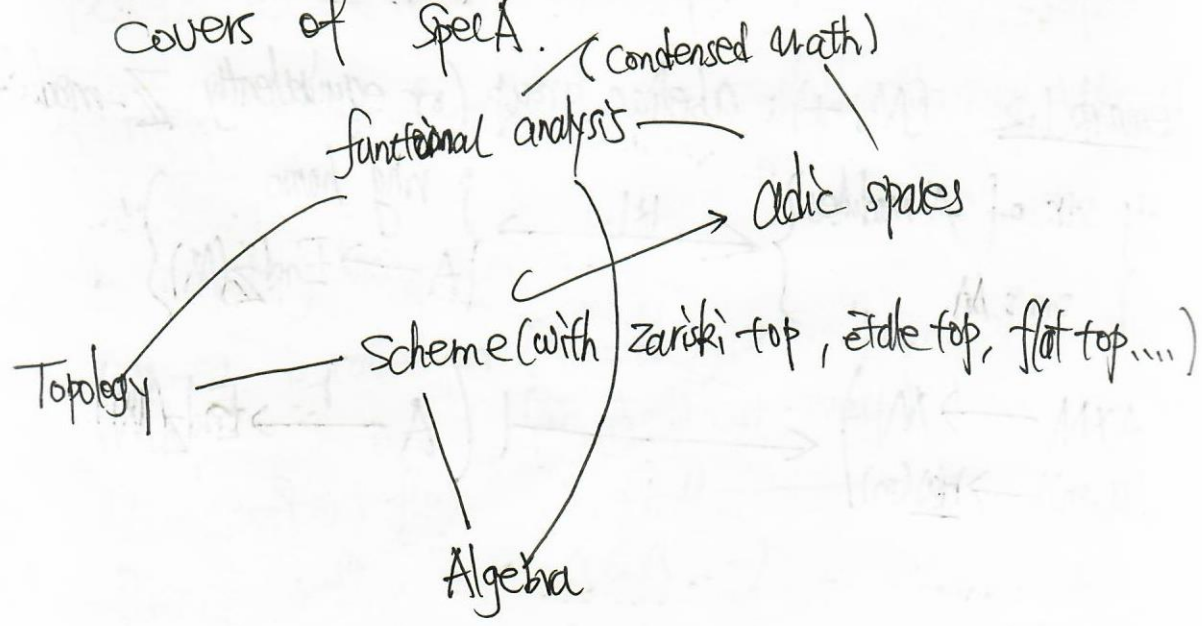 covers of Spec A.
(condensed math)
functional analysis
adic spaces
scheme (with zariski top, étale top, flat top....)
Topology
Algebra